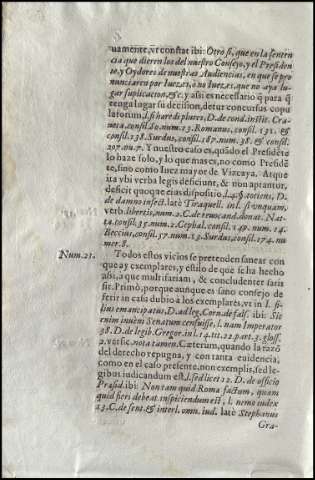 uamente, vt constat ibi: Otro si, que en la senten
cia que dieren los del nuestro Consejo, y el Presiden
te, y Oydores de nuestras Audiencias, en que se pro
nunciaren por Iuezes, ò no Iuezes, que no aya lu-
gar suplicacion, &c. y assi es necesario q̄ para q̄
tenga lugar su decision, detur concursus copu
latorum, l. si hæredi plures, D. de cond. instit. Cra-
ueta, consil. 80. num. 23. Romanus, consil. 131. &
consil. 138. Surdus, consil. 187. num. 38. & consil.
207. nu. 7. Y nuestro caso es, quãdo el Presidẽte
lo haze solo, y lo que mas es, no como Presidẽ
te, sino como Iuez mayor de Vizcaya. Atque
ita vbi verba legis deficiunt, & non aptantur,
deficit quoque eius dispositio, l. 4. §. toties, D.
de damno infect. latè Tiraquell. in l. si vnquam,
verb. libertis, num. 2. C. de reuocand. donat. Nat-
ta, consil. 35. num. 2. Cephal. consil. 149. num. 14.
Beccius, consil. 37. num. 13. Surdus, consil. 174. nu
mer. 8.
Num. 21. Todos estos vicios se pretenden sanear con
que ay exemplares, y estilo de que se ha hecho
assi, a que multifariam, & concludenter satis
fit. Primò, porque aunque es sano consejo de
ferir in casu dubio à los exemplares, vt in l. si
filius emancipatus, D. ad leg. Corn. de fals. ibi: Si
enim inueni Senatum censuisse, l. nam Imperator
38. D. de legib. Gregor. in l. 14. tit. 22. part. 3. gloss.
2. versic. nota tamen. Cæterum, quando la razõ
del derecho repugna, y con tanta euidencia,
como en el caso presente, non exemplis, sed le
gibus iudicandum est, l. sed licet 12. D. de officio
Præsid. ibi: Non tam quid Romæ factum, quam
quid fieri debeat inspiciendum est, l. nemo iudex
13. C. de sent. & interl. omn. iud. latè Stephanus
Gra-